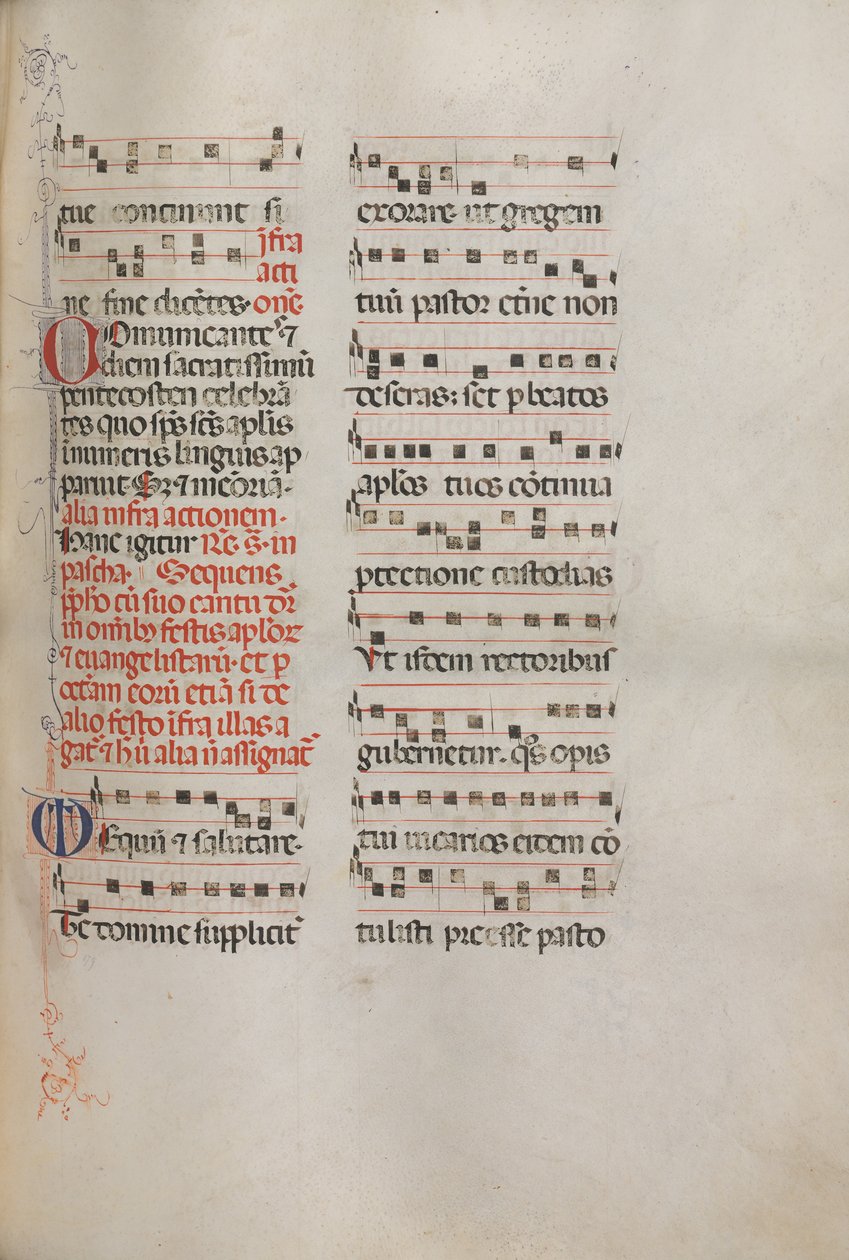 tue continunt si
ne fine dicētes· īfra
acti
onē·
Comunicantes ⁊
diem sacratissimū
pentecosten celebrā
tes quo sp̄s sc̄s aplīs
īnumeris linguis ap
paruit· Sꝫ ⁊ meōriā·
alia infra actionem·
hanc igitur Re· s̄· in
pascha· Sequens
p̄phō cū suo cantu dr̄
in om̄ibꝫ festis aplōꝝ
⁊ euangelistarū· et p
octam eorū etiā si de
alio festo īfra illas a
gat᷑ ⁊ h̄ ū alia ū assignat᷑
Equū ⁊ salutare·
Te domine suppliciť
exorare· ut gregem
tuū pastor et̄ne non
deseras: set p beatos
aplōs tuos cōtinua
ptectione custodias
Vt isdem rectoribus
gubernetur· qs̄ opis
tui uicarios eidem cō
tulisti preesse pasto